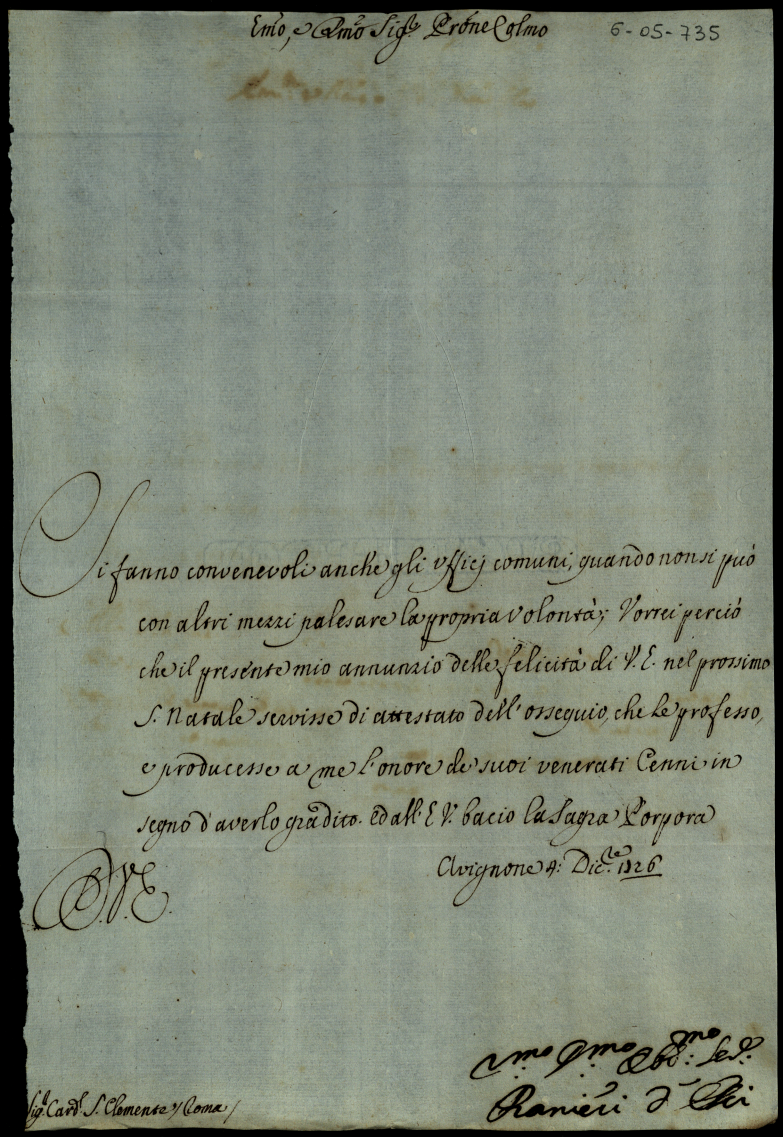 Emo, e Rmo Sigr Prone Colmo
6-05-735
Si fanno convenevoli anche gli Vfficj comuni, quando non si può
con altri mezzi palesare la propria Volontà; Vorrei perciò
che il presente mio annunzio delle felicità di V. E. nel prossimo
S. Natale servisse di attestato dell'ossequio, che Le professo,
e producesse a me l'onore de suoi venerati Cenni in
segno d'averlo gradito. Ed all'E V. bacio la Sagra Porpora
Avignone 4: Dicre 1726
D. V. E.
Vmo Dmo Obbmo Sere
Ranieri d'Elci
Sigr Cardl S. Clemente / Roma /